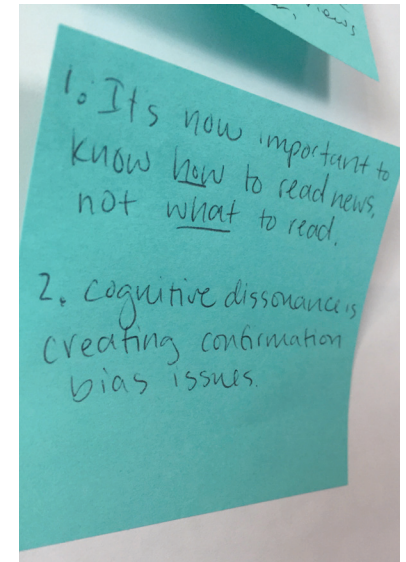 views
1. Its now important to
know how to read news,
not what to read.
2. Cognitive dissonance is
creating confirmation
bias issues.